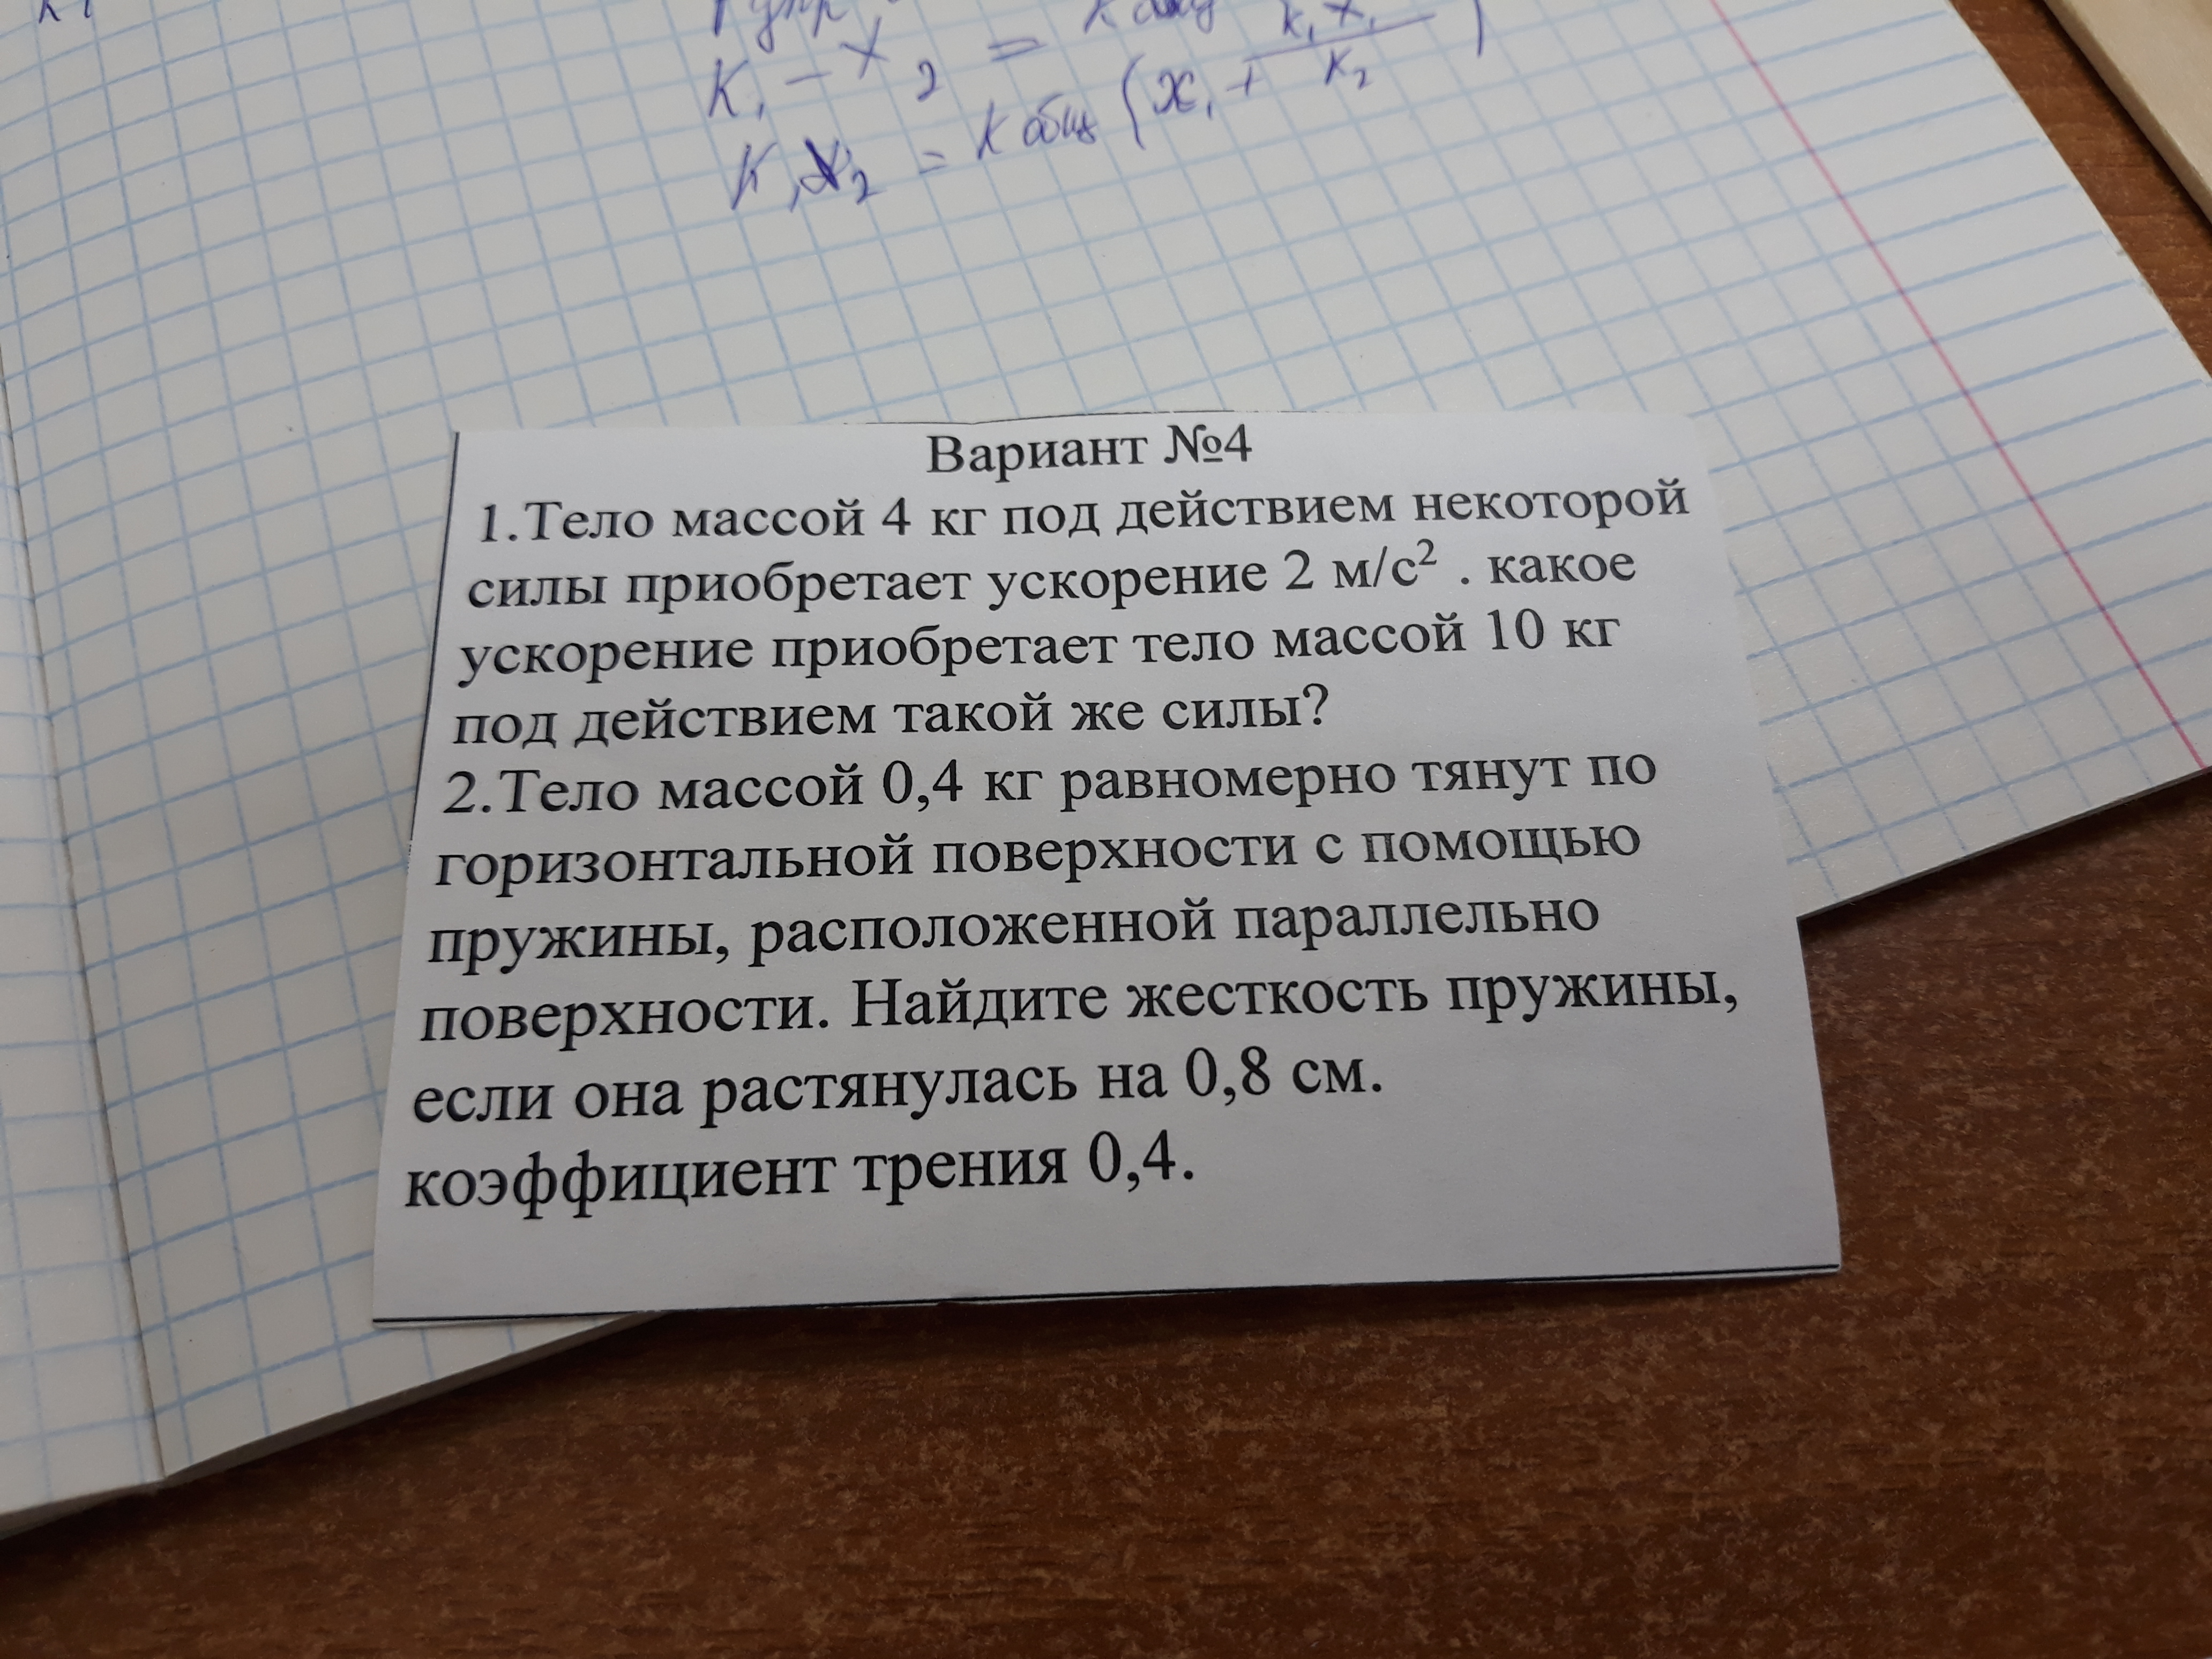 K₁ - x₂ = K общ
K₁x₂ = K общ (x₁ + K₁x₁/K₂)
Вариант №4
1.Тело массой 4 кг под действием некоторой
силы приобретает ускорение 2 м/с² . какое
ускорение приобретает тело массой 10 кг
под действием такой же силы?
2.Тело массой 0,4 кг равномерно тянут по
горизонтальной поверхности с помощью
пружины, расположенной параллельно
поверхности. Найдите жесткость пружины,
если она растянулась на 0,8 см.
коэффициент трения 0,4.